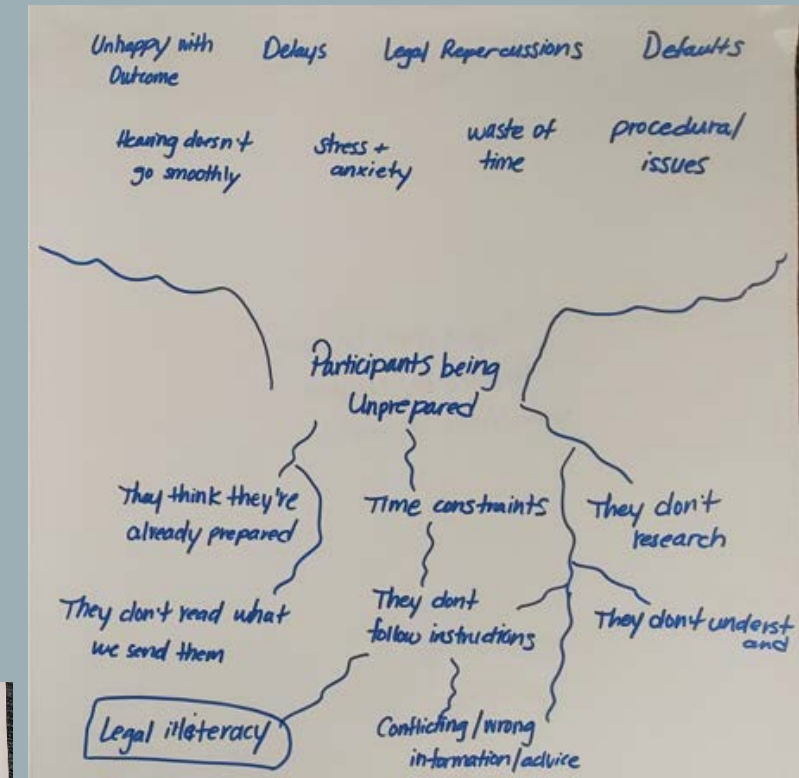 Unhappy with
Outcome
Delays
Legal Repercussions
Defaults
Hearing doesn't
go smoothly
stress +
anxiety
waste of
time
procedural
issues
Participants being
Unprepared
They think they're
already prepared
Time constraints
They don't
research
They don't read what
we send them
They dont
follow instructions
They don't underst
and
Legal illiteracy
Conflicting/wrong
information/advice